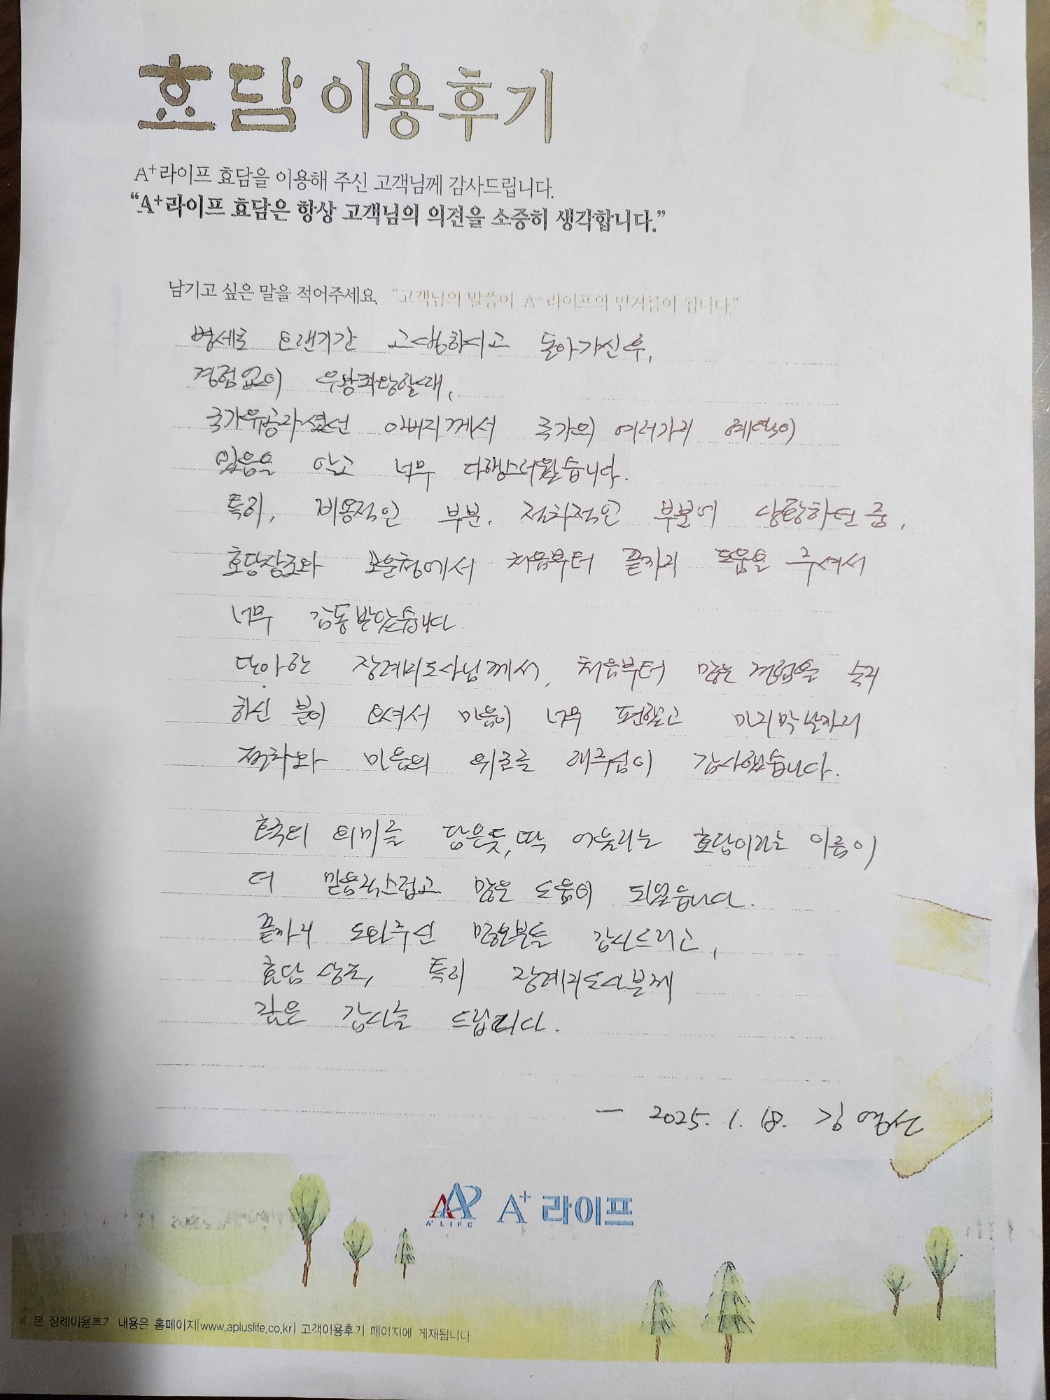 효담 이용후기
A+라이프 효담을 이용해 주신 고객님께 감사드립니다.
“A+라이프 효담은 항상 고객님의 의견을 소중히 생각합니다.”
남기고 싶은 말을 적어주세요. “고객님의 말씀이 A+라이프의 밑거름이 됩니다.”
병세로 오랜기간 고생하시고 돌아가신후,
경험없이 우왕좌왕할때,
국가유공자셨던 아버지께서 국가의 여러가지 혜택이
있음을 알고 너무 다행스러웠습니다.
특히, 비용적인 부분, 절차적인 부분에 당황하던 중,
효담상조와 보훈청에서 처음부터 끝까지 도움을 주셔서
너무 감동받았습니다.
단아한 장례지도사님께서, 처음부터 많은 경험을 숙지
하신 분이 오셔서 마음이 너무 편했고 마지막날까지
절차와 마음의 위로를 해주심이 감사했습니다.
효국의 의미를 담은듯, 딱 어울리는 효담이라는 이름이
더 믿음직스럽고 많은 도움이 되었습니다.
끝까지 도와주신 많은분들 감사드리고,
효담 상조, 특히 장례지도사분께
깊은 감사를 드립니다.
- 2025. 1. 18. 김영선
A+ LIFE A+ 라이프
본 장례이용후기 내용은 홈페이지(www.apluslife.co.kr) 고객이용후기 페이지에 게재됩니다.